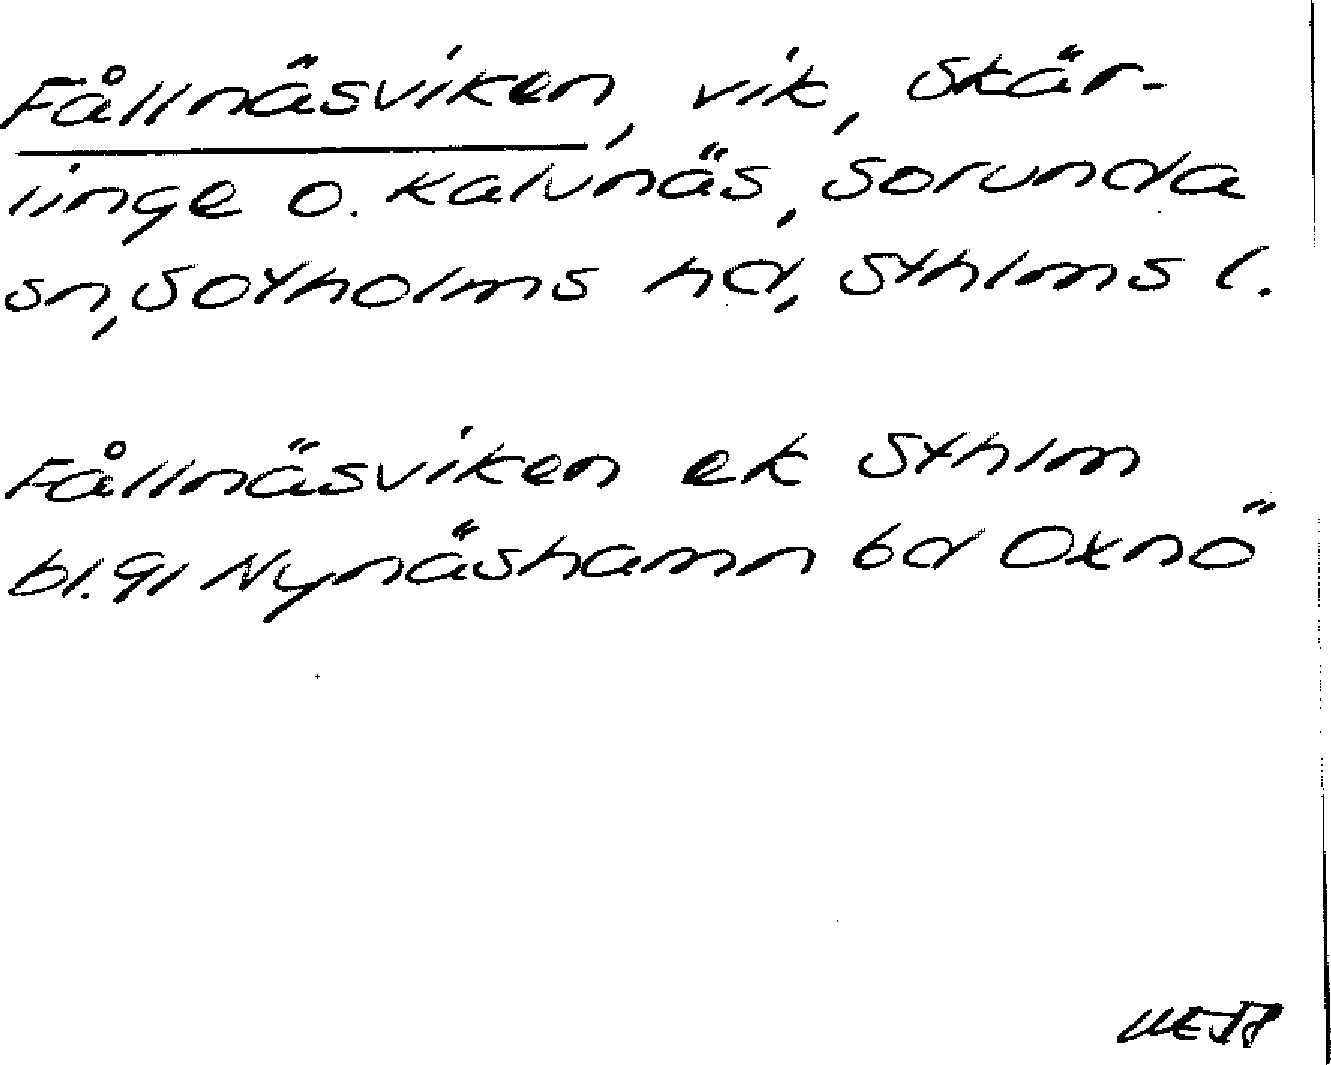 Fållnäsviken, vik, Skär-
linge o. Kalvnäs, Sorunda
sn, Sotholms hd, Sthlms l.
Fållnäsviken ek Sthlm
bl. 91 Nynäshamn bd Oxnö